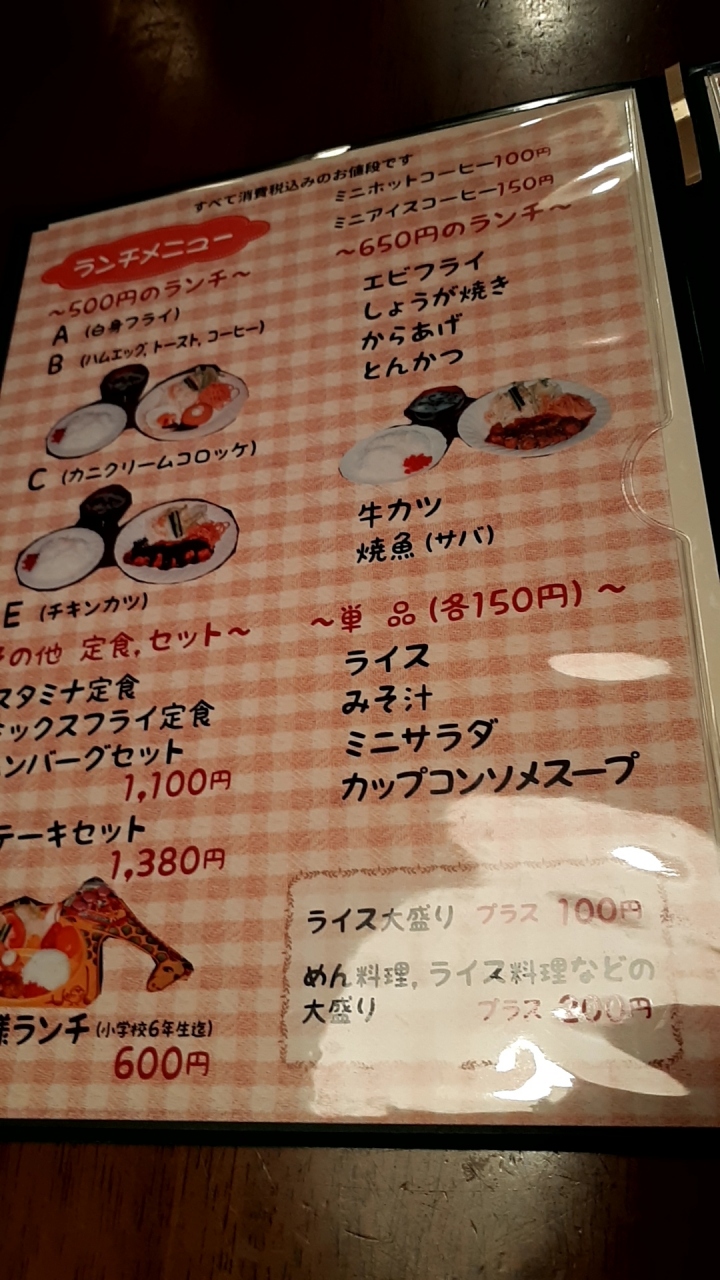 すべて消費税込みのお値段です
ランチメニュー
～500円のランチ～
A (白身フライ)
B (ハムエッグ, トースト, コーヒー)
C (カニクリームコロッケ)
E (チキンカツ)
の他 定食, セット～
スタミナ定食
ックスフライ定食
ンバーグセット
1,100円
テーキセット
1,380円
様ランチ (小学校6年生迄)
600円
ミニホットコーヒー100円
ミニアイスコーヒー150円
～650円のランチ～
エビフライ
しょうが焼き
からあげ
とんかつ
牛カツ
焼魚 (サバ)
～単 品 (各150円) ～
ライス
みそ汁
ミニサラダ
カップコンソメスープ
ライス大盛り プラス 100円
めん料理, ライス料理などの
大盛り プラス 200円